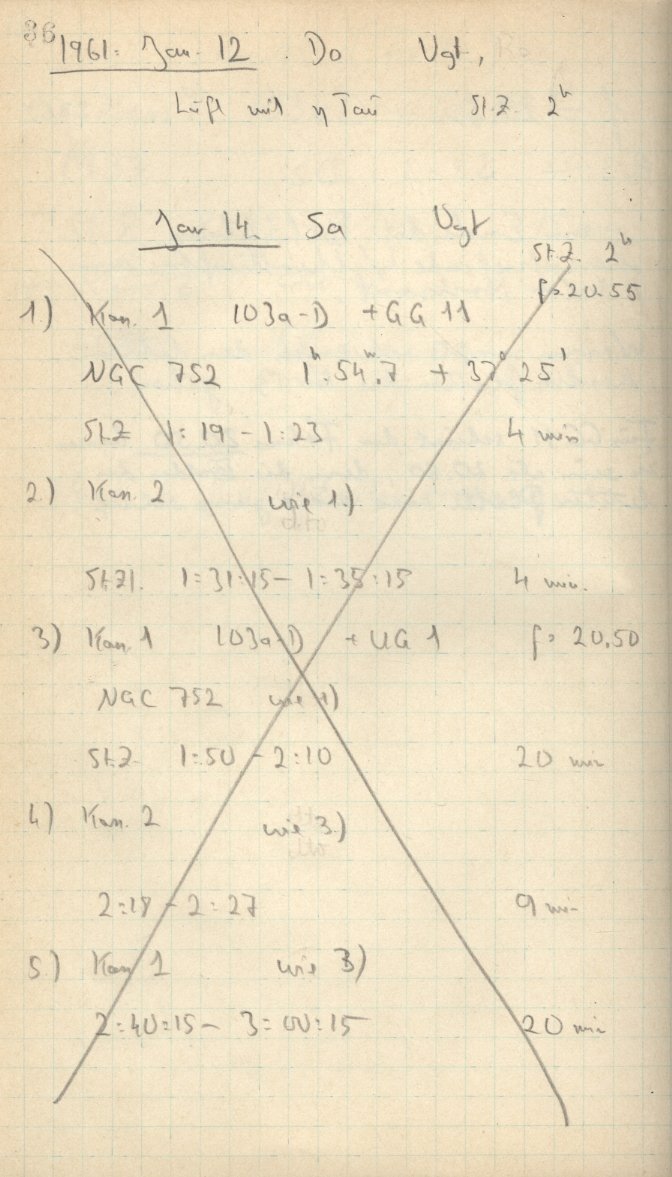 36
1961: Jan. 12. Do Vgt,
Luft mit η Tau St.Z. 2h
Jan 14. Sa Vgt
St.Z. 2h
1) Kam. 1 103a-D + GG 11 f= 20.55
NGC 752 1h.54m.7 + 37° 25'
St.Z 1:19 - 1:23 4 min
2) Kam. 2 wie 1.)
St.Zt. 1:31:15 - 1:35:15 4 min.
3) Kam. 1 103a-D + UG 1 f= 20.50
NGC 752 wie 1)
St.Z. 1:50 - 2:10 20 min
4) Kam. 2 wie 3.)
2:18 - 2:27 9 min
5.) Kam 1 wie 3)
2:40:15 - 3:00:15 20 min